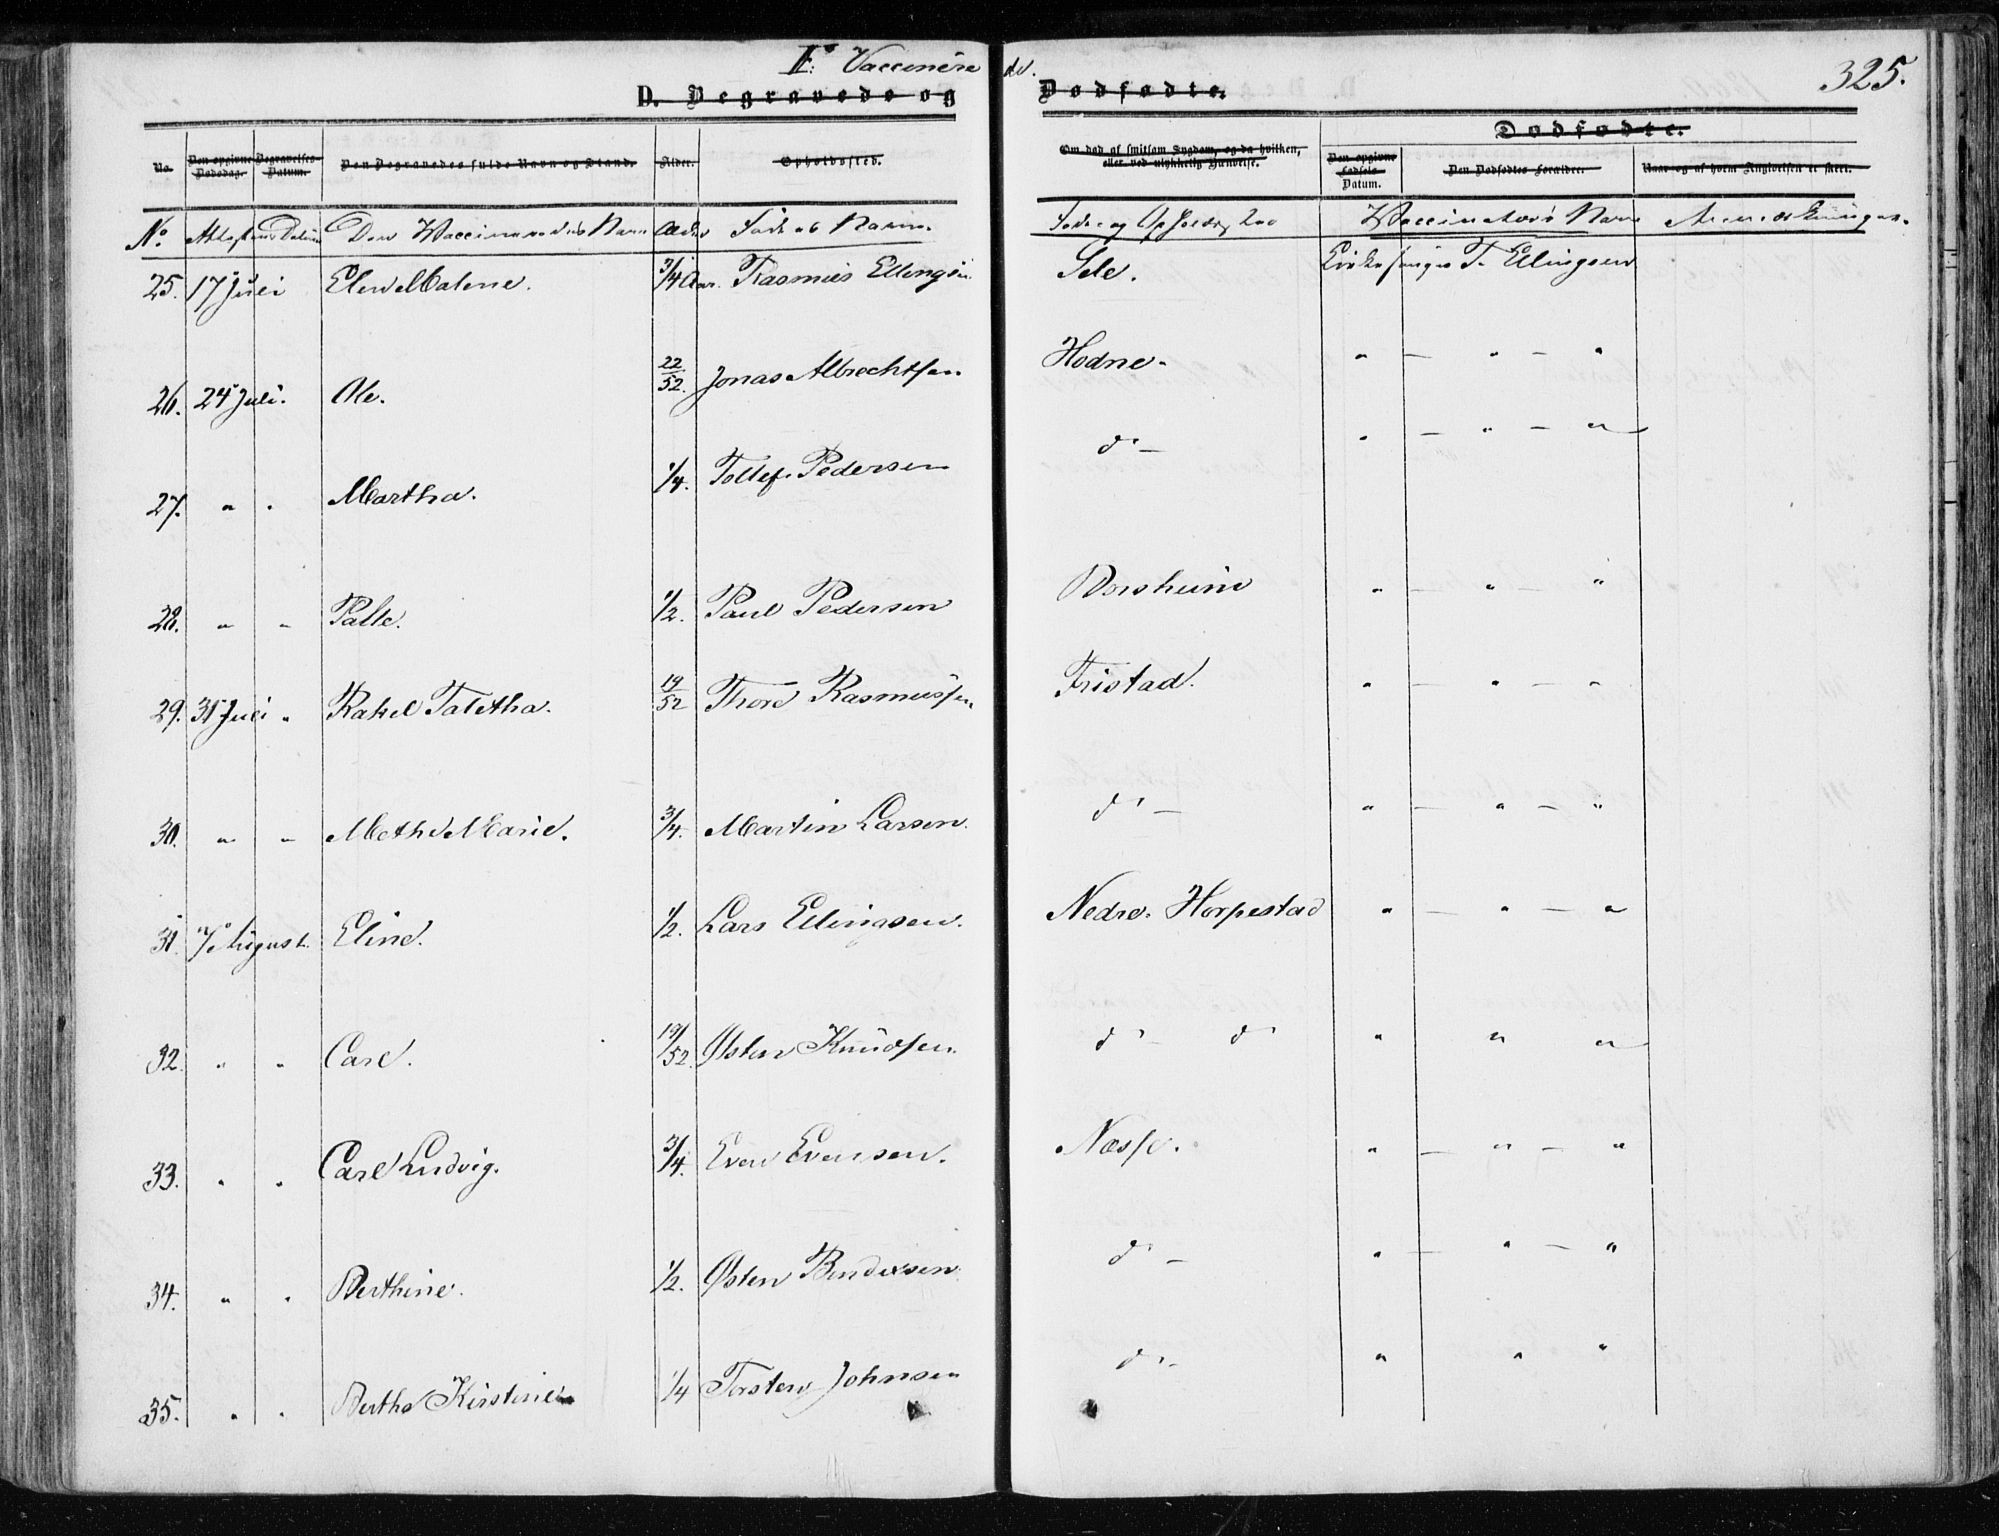 F. Vaccinerede.
325.
D. Begravede og Dødfødte.
Dødfødte.
No. Den opgivne Dødsdag. Begravelses-Datum. Den Begravedes fulde Navn og Stand. Alder. Opholdssted. Om død af smitsom Sygdom, og da hvilken, eller ved ulykkelig Hændelse. Den opgivne Fødsels Datum. Den Dødfødtes Forældre. Naar og af hvem Angivelsen er skeet.
No Attestens Datum Den Vaccineredes Navn Alder Faders Navn. Føde og Opholdssted Vaccinateurs Navn Anmærkninger.
25. 17 Juli Elen Malene. 3/4 Aar. Rasmus Ellingsen Sele. Kirkesanger T. Ellingsen
26. 24 Juli. Ole. 22/52. Jonas Albrechtsen Hodne. " — " — "
27. " " Martha. 1/4. Tollef Pedersen do — " — " — "
28. " " Palle. 1/2. Paul Pedersen Borsheim " — " — "
29. 31 Juli " Rakel Taletha. 19/52 Thore Rasmussen Fristad. " — " — "
30. " " Methe Marie. 3/4. Martin Larsen. do — " — " — "
31. 7 August. Eline. 1/2. Lars Ellingsen. Nedre Horpestad " — " — "
32. " " Carl. 19/52. Østen Knudsen. do — do " " "
33. " " Carl Ludvig. 3/4. Even Evensen. Næsse. " — " — "
34. " " Berthine. 1/2. Østen Bendixsen do — " — " — "
35. " " Berthe Kirstine 1/4 Torsten Johnsen do — " " "